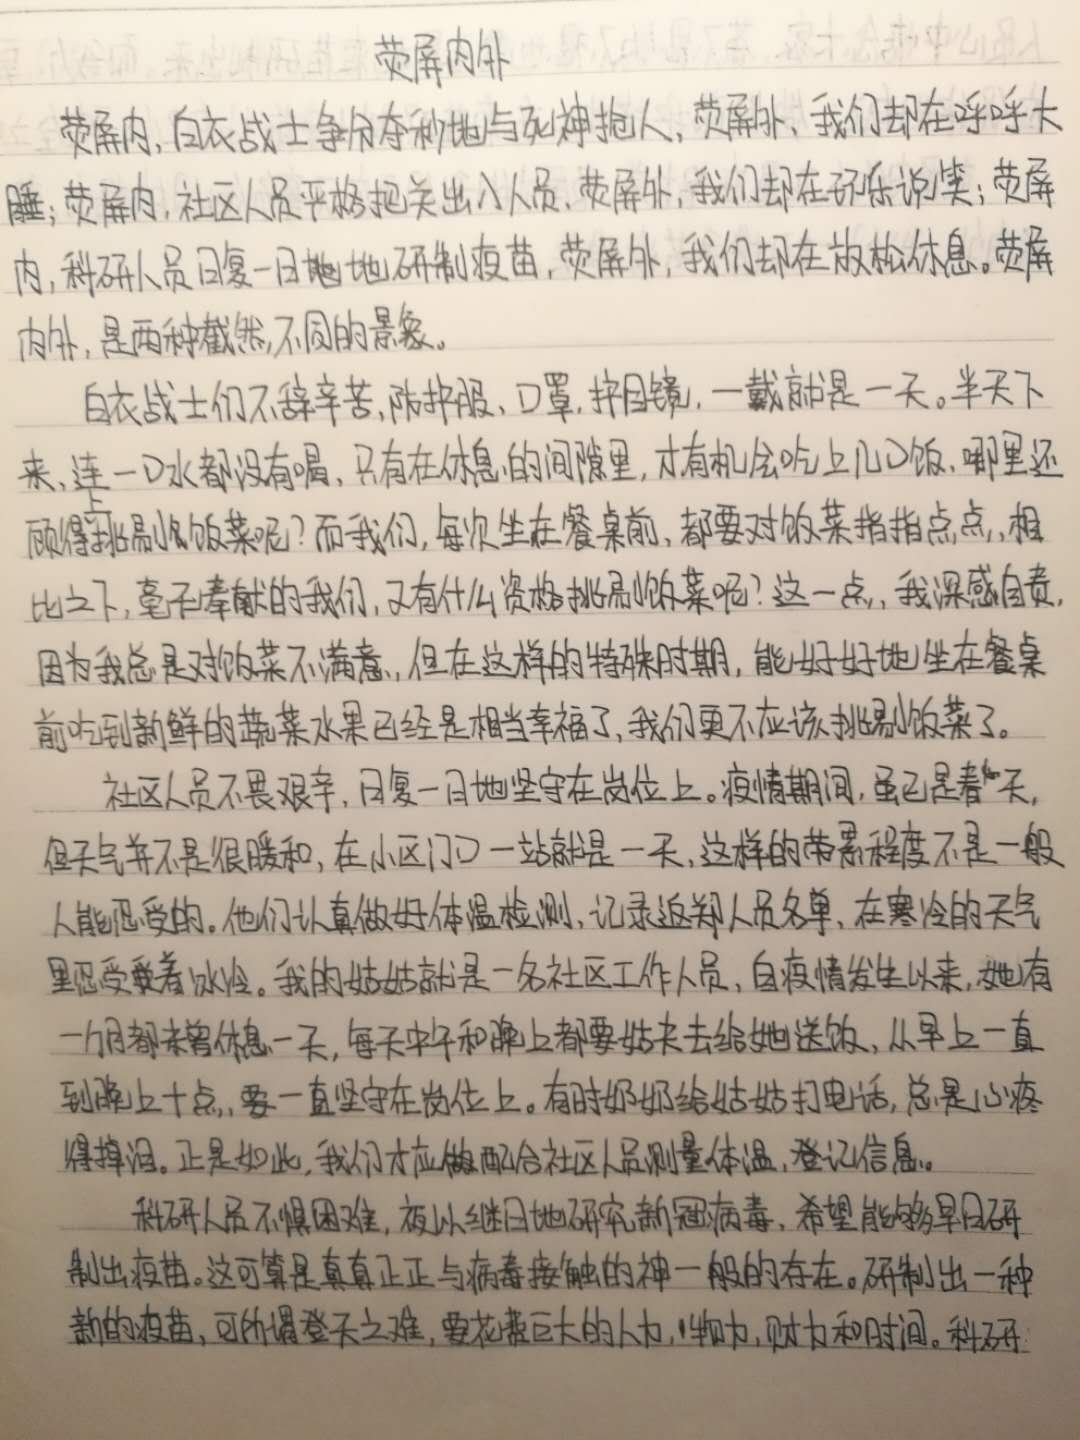 荧屏内外
荧屏内，白衣战士争分夺秒地与死神抢人，荧屏外，我们却在呼呼大
睡；荧屏内，社区人员严格把关出入人员，荧屏外，我们却在玩乐说笑；荧屏
内，科研人员日复一日地研制疫苗，荧屏外，我们却在放松休息。荧屏
内外，是两种截然不同的景象。
白衣战士们不辞辛苦，防护服、口罩，护目镜，一戴就是一天。半天下
来，连一口水都没有喝，只有在休息的间隙里，才有机会吃上几口饭，哪里还
顾得上挑剔饭菜呢？而我们，每次坐在餐桌前，都要对饭菜指指点点，相
比之下，毫无奉献的我们，又有什么资格挑剔饭菜呢？这一点，我深感自责，
因为我总是对饭菜不满意，但在这样的特殊时期，能好好地坐在餐桌
前吃到新鲜的蔬菜水果已经是相当幸福了，我们更不应该挑剔饭菜了。
社区人员不畏艰辛，日复一日地坚守在岗位上。疫情期间，虽已是春天，
但天气并不是很暖和，在小区门口一站就是一天，这样的劳累程度不是一般
人能忍受的。他们认真做好体温检测，记录返郑人员名单，在寒冷的天气
里忍受着冰冷。我的姑姑就是一名社区工作人员，自疫情发生以来，她有
一个月都未曾休息一天，每天中午和晚上都要姑夫去给她送饭，从早上一直
到晚上十点，要一直坚守在岗位上。有时奶奶给姑姑打电话，总是心疼
得掉泪。正是如此，我们才应做配合社区人员测量体温，登记信息。
科研人员不惧困难，夜以继日地研究新冠病毒，希望能够早日研
制出疫苗。这可算是真真正正与病毒接触的神一般的存在。研制出一种
新的疫苗，可所谓登天之难，要花费巨大的人力，物力，财力和时间。科研